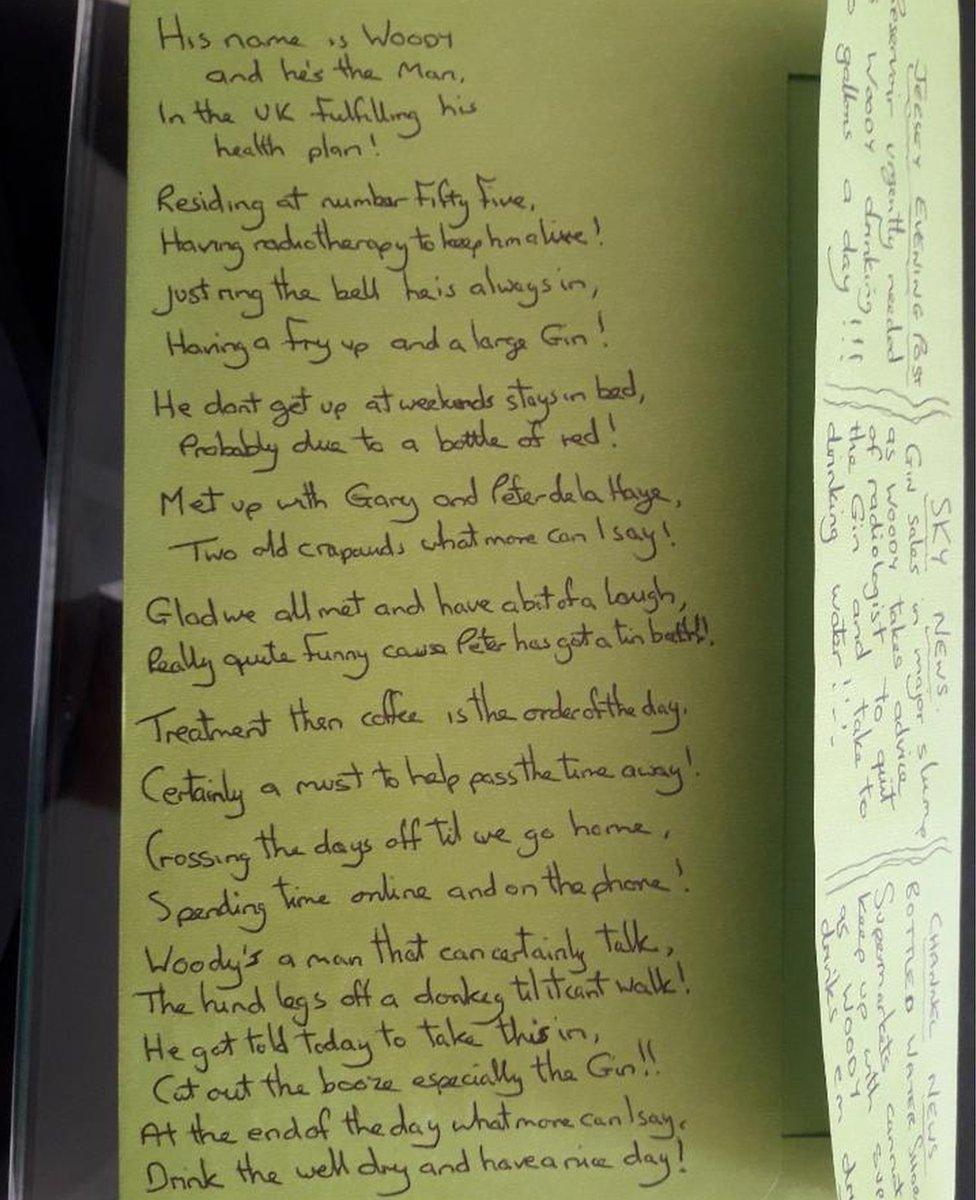 His name is Woody
and he's the Man,
In the UK fulfilling his
health plan!
Residing at number Fifty Five,
Having radiotherapy to keep hm alive!
Just ring the bell he is always in,
Having a fry up and a large Gin!
He dont get up at weekends stays in bed,
Probably due to a bottle of red!
Met up with Gary and Peter de la Haye,
Two old crapauds what more can I say!
Glad we all met and have a bit of a laugh,
Really quite funny cause Peter has got a tin bath!!
Treatment then coffee is the order of the day,
Certainly a must to help pass the time away!
Crossing the days off til we go home,
Spending time online and on the phone!
Woody's a man that can certainly talk,
The hind legs off a donkey til it cant walk!
He got told today to take this in,
Cut out the booze especially the Gin!!
At the end of the day what more can I say,
Drink the well dry and have a nice day!
JERSEY EVENING POST
Reservoir urgently needed
Woody drinking
gallons a day!!!
SKY NEWS
Gin sales in major slump
as Woody takes advice
of radiologist to quit
the Gin and take to
drinking water!!
CHANNEL NEWS
BOTTLED WATER
Supermarkets cannot
keep up with
as Woody
drinks em